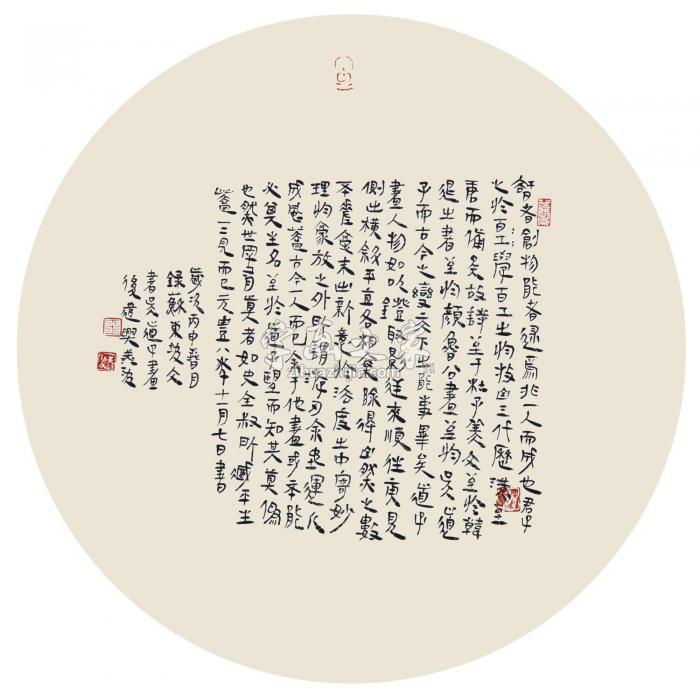 智者創物能者述焉非一人而成也君子
之於百工學百工之於技自三代歷漢至
唐而備矣故詩至于杜子美文至於韓
退之書至於顏魯公畫至於吳道
子而古今之變天下之能事畢矣道子
畫人物如以燈取影逆來順往旁見
側出橫斜平直各相乘除得自然之數
不差毫末出新意於法度之中寄妙
理於豪放之外所謂游刃余地運斤
成風蓋古今一人而已余于他畫或不能
必其主名至於道子望而知其真偽
也然世罕有真者如史全叔所藏平生
蓋一二見而已元豐八年十一月七日書
歲次丙申春月
錄蘇東坡文
書吳道子畫
後
字画之家
zihuazhijia.com